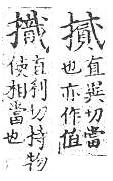 直異切當
也亦作值
直利切持物
使相當也